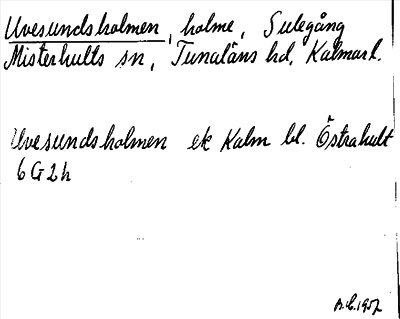 Uvesundsholmen, holme, Sulegång
Misterhults sn, Tunaläns hd, Kalmar l.
Uvesundsholmen ek Kalm bl. Östrahult
6G2h
1957